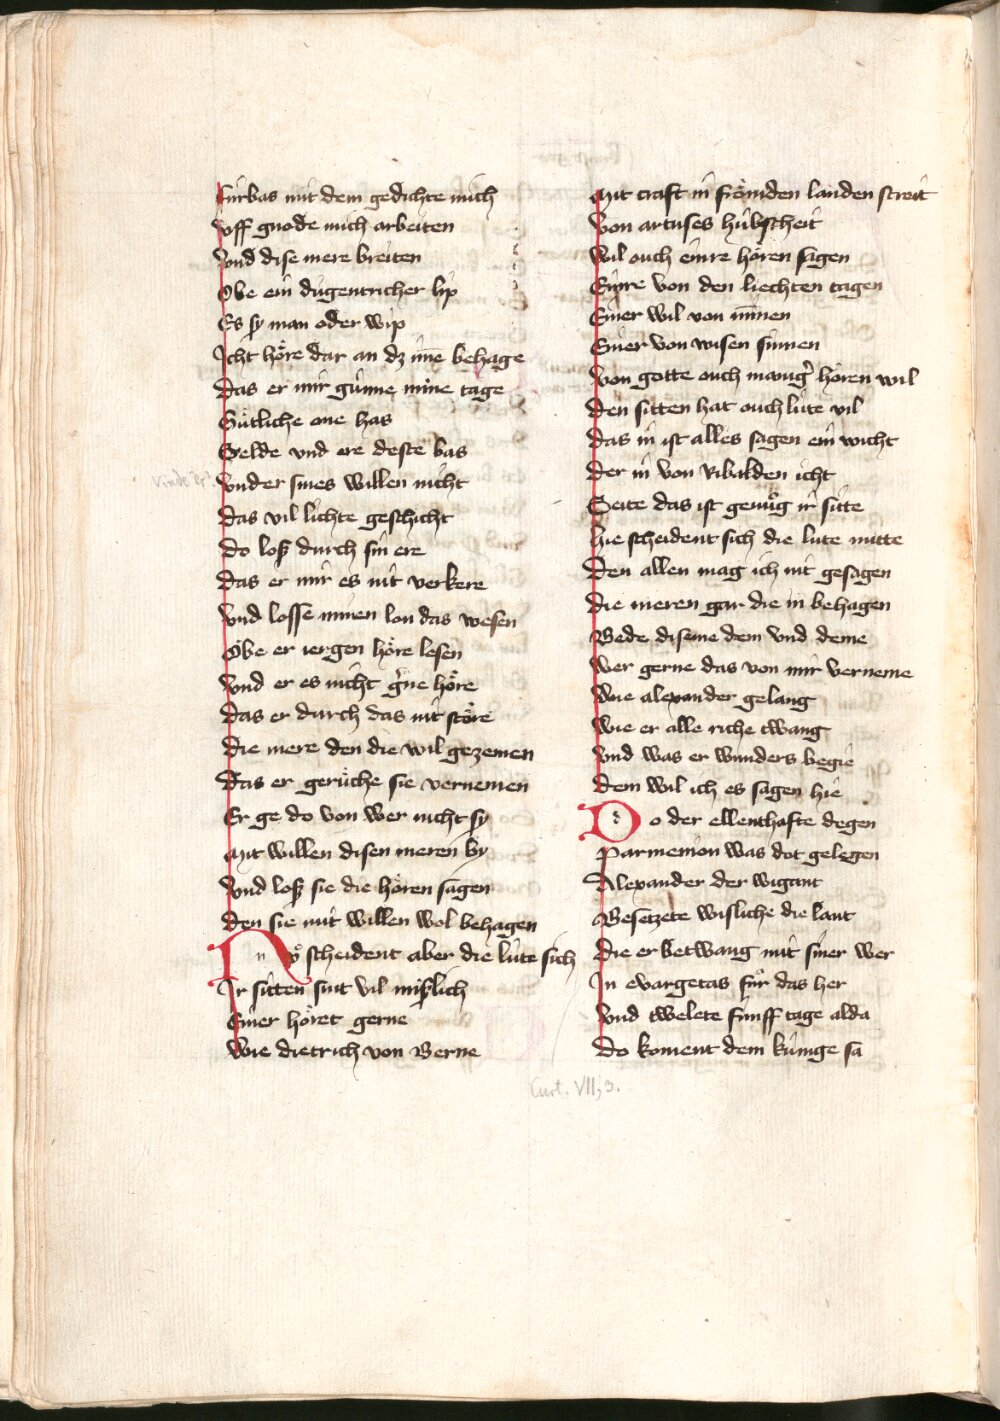 fúrbas mit dem gedichte mich
vff gnode mich arbeiten
vnd dise mere breiten
Obe ein dúgentricher lip
Es sy man oder wip
Icht hoͤre dar an dz ime behage
das er mir gúnne mine tage
Guͤtliche one has
Selde vnd ere deste bas
vnder sines willen nicht
das vil lichte geschicht
do losz durch sin ere
das er mir es nit verkere
vnd losse minen lon das wesen
Obe er iergen hoͤre lesen
vnd er es nicht g'ne hoͤre
das er durch das nit stoͤre
die mere den die wil gezemen
das er geruͤche sie vernemen
Er ge do von wer nicht sy
mit willen disen meren by
vnd losz sie die hoͤren sagen
den sie mit willen wol behagen
Nv scheident aber die lúte sich
Ir sitten sint vil miszlich
Einer hoͤret gerne
wie dietrich von Berne
mit craft in froͤmden landen streit
von artuses húbscheit
wil ouch einre hoͤren sagen
Einre von den liechten tagen
Einer wil von minnen
Einer von wisen sinnen
von gotte ouch manig' hoͤren wil
den sitten hat ouch lúte vil
das in ist alles sagen ein wicht
der in von Ribalden icht
Seite das ist genuͦg ir sitte
hie scheident sich die lute mitte
den allen mag ich nit gesagen
die meren gar die in behagen
Bede diseme dem vnd deme
wer gerne das von mir verneme
wie alexander gelang
wie er alle riche twang
vnd was er wunders begie
dem wil ich es sagen hie
Do der ellenthafte degen
Parmenion was dot gelegen
Alexander der wigant
Besetzete wisliche die lant
die er betwang mit siner wer
In evargetas fuͤr das her
vnd twelete fúnff tage alda
do koment dem kúnige sa
Curt. VII, 3.